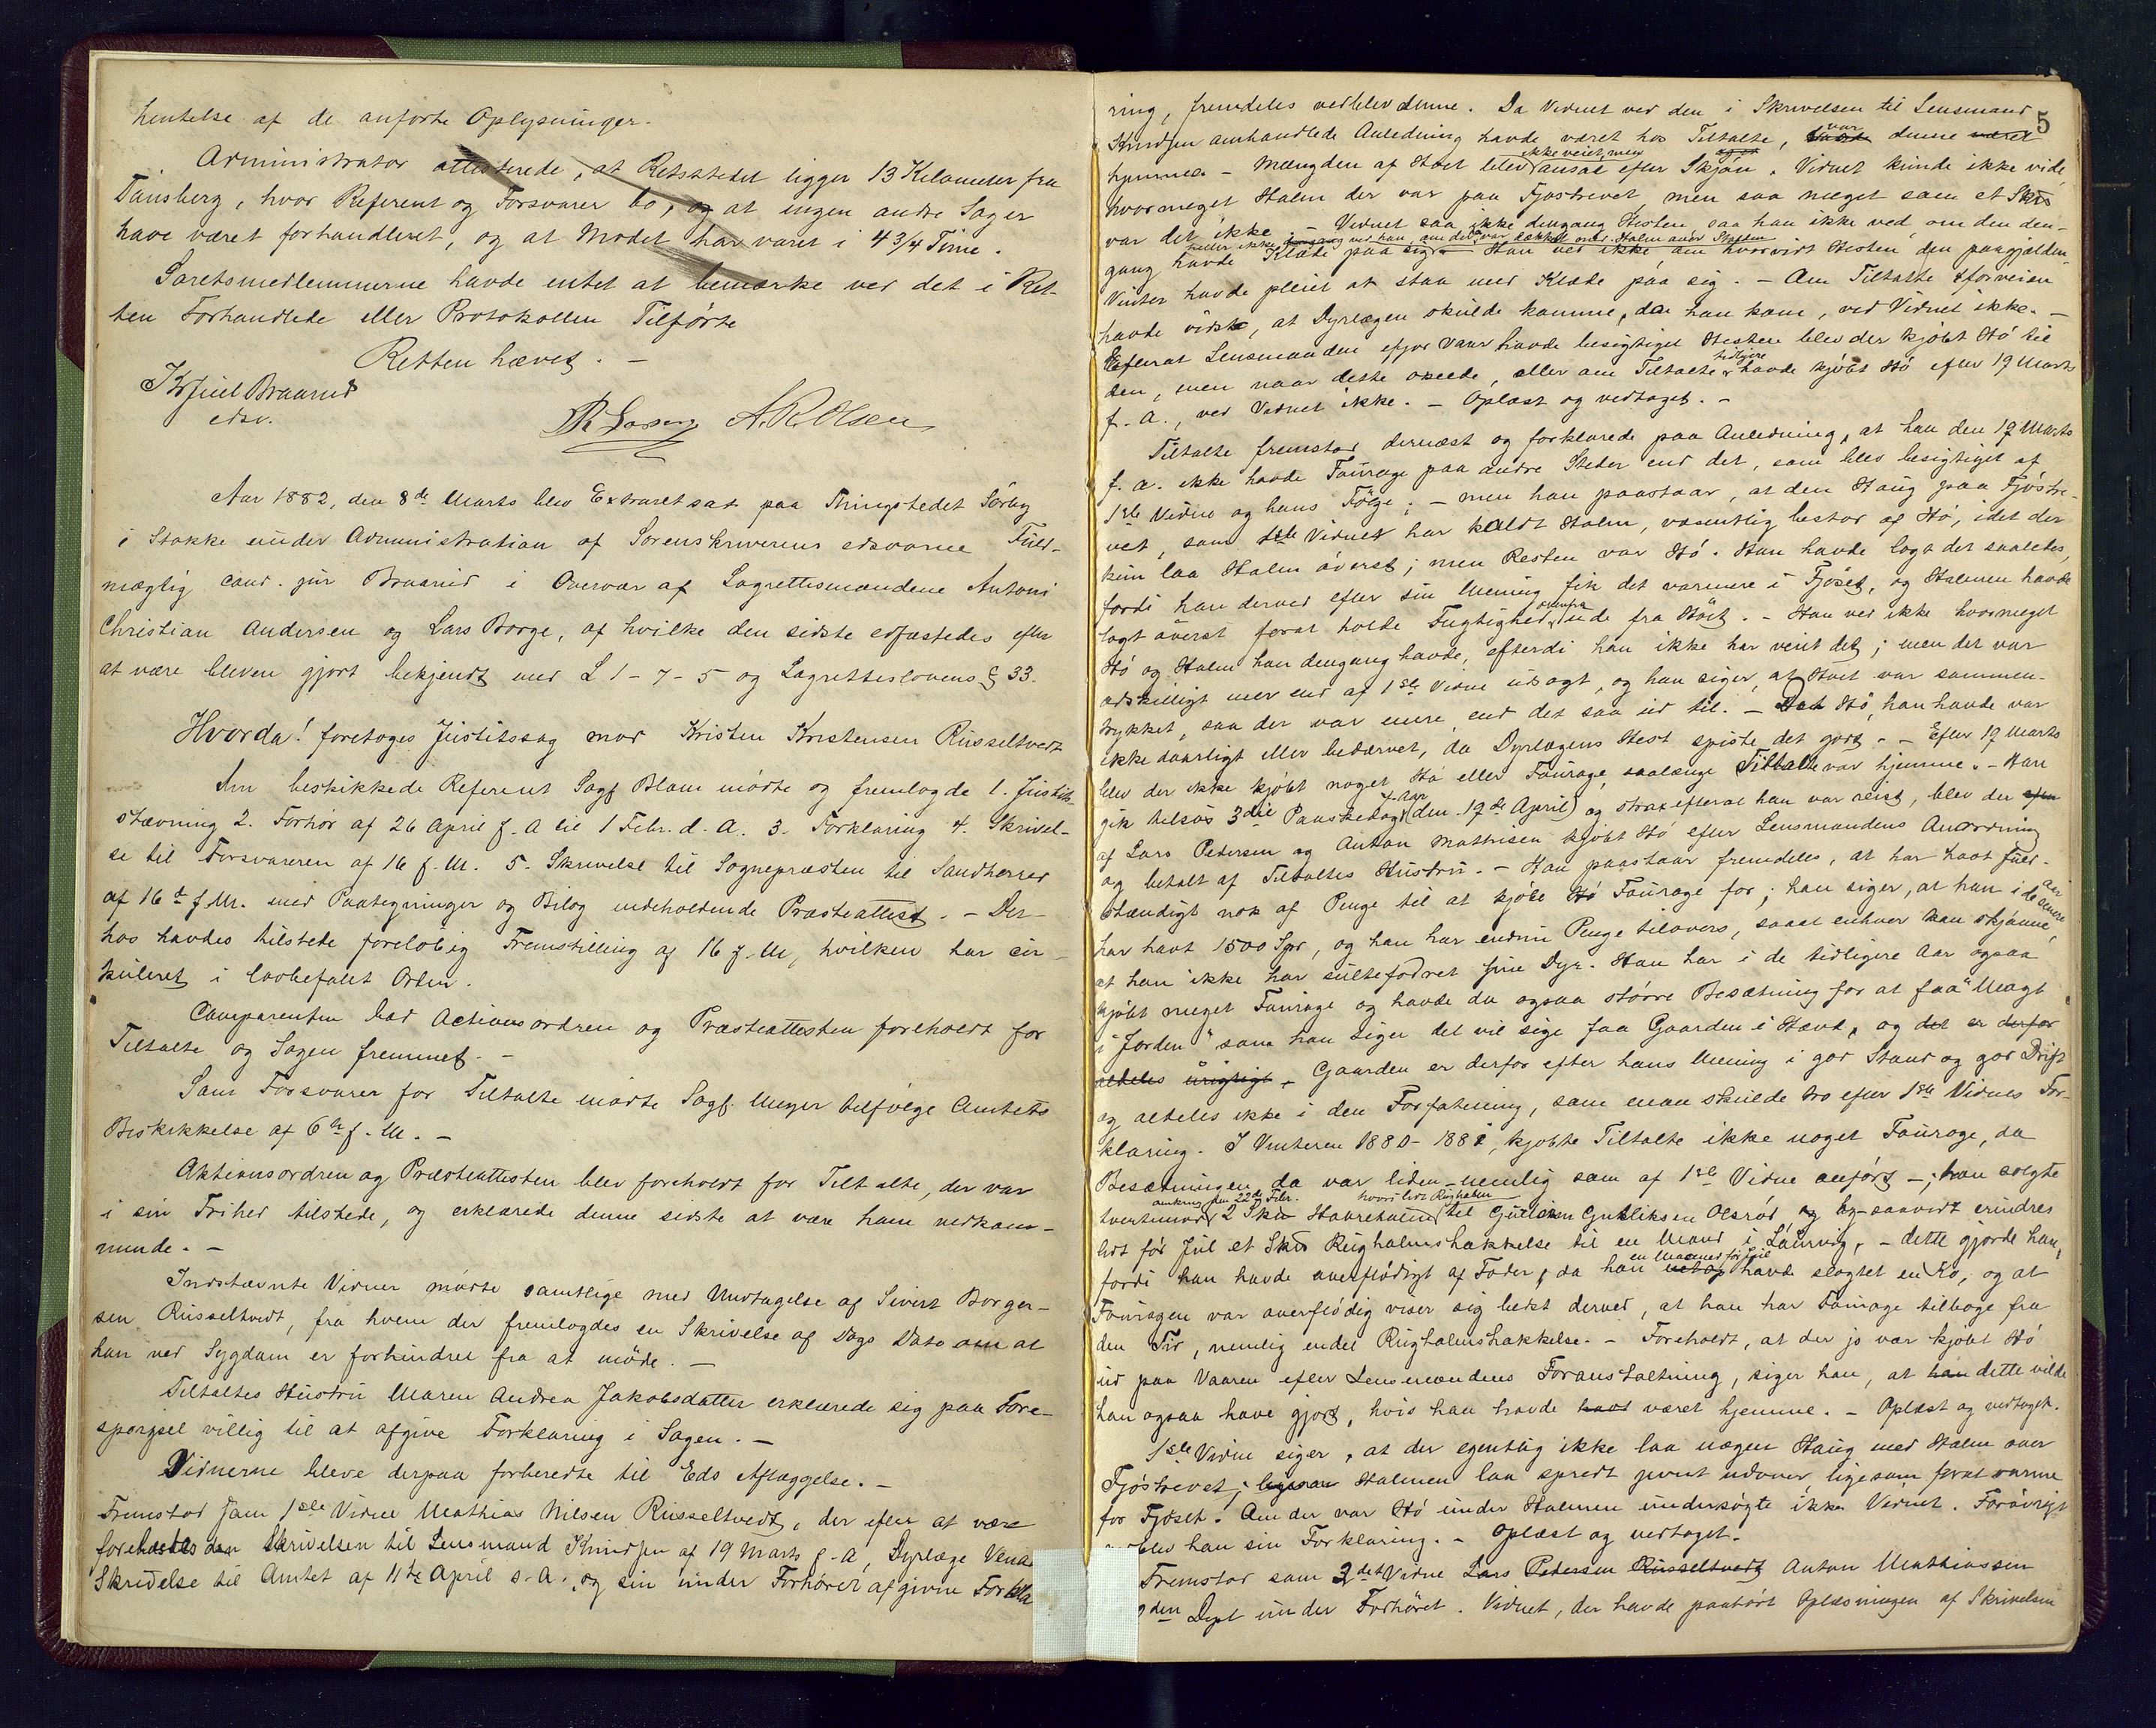 hentelse af de anførte Oplysninger.
Administrator attesterede, at Retsstedet ligger 13 Kilometer fra
Tønsberg, hvor Referent og Forsvarer bo, og at ingen andre Sager
have været forhandlet, og at Mødet har varet i 4 3/4 Time.
Laretsmedlemmerne havde intet at bemærke ved det i Ret-
ten Forhandlede eller Protokollen Tilførte
Retten hævet. -
Braarud
edsv.
A. R. Olsen
Aar 1882, den 8de Marts blev Extraret sat paa Thingstedet Sørby
i Stokke under Administration af Sorenskriverens edsvorne Fuld-
mægtig cand. jur Braarud i Overvær af Lagrettesmændene Antoni
Christian Andersen og Lars Borge, af hvilke den sidste edfæstedes efter
at være bleven gjort bekjendt med L 1-7-5 og Lagretteslovens § 33.
Hvorda! foretoges Justitssag mod Kristen Kristensen Russeltvedt
Den beskikkede Referent Sagf Blom mødte og fremlagde 1. Justits-
stævning 2. Forhør af 26 April f. A til 1 Febr. d. A. 3. Forklaring 4. Skrivel-
se til Forsvareren af 16 f. M. 5. Skrivelse til Sognepræsten til Sandherred
af 16de f. M. med Paategninger og Bilag indeholdende Præsteattest. - Der-
hos havdes tilstede foreløbig Fremstilling af 16 f. M, hvilken har cir-
kuleret i lovbefalet Orden.
Comparenten bad Actionsordren og Præsteattesten foreholdt for
Tiltalte og Sagen fremmet. -
Som Forsvarer for Tiltalte mødte Sagf. Meyer tilfølge Amtets
Beskikkelse af 6te f. M. -
Aktionsordren og Præsteattesten blev foreholdt for Tiltalte, der var
i sin Frihed tilstede, og erklærede denne sidste at være ham vedkom-
mende. -
Indstævnte Vidner mødte samtlige med Undtagelse af Sivert Borger-
sen Russeltvedt, fra hvem der fremlagdes en Skrivelse af Dags Dato om at
han ved Sygdom er forhindret fra at møde. -
Tiltaltes Hustru Maren Andrea Jakobsdatter erklærede sig paa Fore-
spørgsel villig til at afgive Forklaring i Sagen. -
Vidnerne bleve derpaa forberedte til Eds Aflæggelse. -
Fremstod som 1ste Vidne Mathias Nilsen Russeltvedt, der efter at være
forelæstes den Skrivelsen til Lensmand Knudsen af 19 Marts f. A, Dyrlæge
Skrivelse til Amtet af 11te April s. A. og sin under Forhøret afgivne Forkla
5
ring, fremdeles vedblev denne. Da Vidnet ved den i Skrivelsen til Lensmand
Knudsen omhandlede Anledning havde været hos Tiltalte, var denne været
hjemme. - Mængden af Høet blev ikke veiet, men ansat efter Skjøn. Vidnet kunde ikke vide,
hvormeget Halm der var paa Fjøstrevet, men saa meget som et Skd
var det ikke. - Vidnet saa ikke dengang Hesten saa han ikke ved, om den den-
heller ikke ved han, om den var dækket med Halm over Stalden
gang havde Klæde paa sig. - Han ved ikke, om hvorvidt Hesten den paagjælden-
Vinter havde pleiet at staa med Klæde paa sig. - Om Tiltalte i forveien
havde vidst, at Dyrlægen skulde komme, da han kom, ved Vidnet ikke. -
Efterat Lensmanden ifjor Vaar havde besigtiget Hesten blev der kjøbt Hø til
den, men naar dette skeede, eller om Tiltalte tidligere havde kjøbt Hø efter 19 Marts
f. A., ved Vidnet ikke. - Oplæst og vedtaget. -
Tiltalte fremstod dernæst og forklarede paa Anledning, at han den 19 Marts
f. A. ikke havde Fourage paa andre Steder end det, som blev besigtiget af
1ste Vidne og hans Følge; - men han paastaar, at den Haug paa Fjøstre-
vet, som 1ste Vidnet har kaldt Halm, væsentlig bestod af Hø, idet der
kun laa Halm øverst; men Resten var Hø. Han havde lagt det saaledes,
fordi han derved efter sin Mening fik det varmere i Fjøset, og Halmen havde
lagt øverst forat holde Fugtighed ovenfra ude fra Høet. - Han ved ikke hvormeget
Hø og Halm han dengang havde, efterdi han ikke har veiet det; men det var
adskilligt mer end af 1ste Vidne udsagt, og han siger, at Høet var sammen-
trykket, saa der var mere end det saa ud til. - Det Hø, han havde var
ikke daarligt eller bedærvet, da Dyrlægens Hest spiste det godt. - Efter 19 Marts
blev der ikke kjøbt noget Hø eller Fourage, saalænge Tiltalte var hjemme. - Han
gik tilsøs 3die Paaskedag f. Aar (den 19de April) og strax efterat han var reist, blev der efter
af Lars Pedersen og Anton Mathisen kjøbt Hø efter Lensmandens Anordning
og betalt af Tiltaltes Hustru. - Han paastaar fremdeles, at har havt fuld-
stændigt nok af Penge til at kjøbe Hø Fourage for; han siger, at han i de senere Aar
har havt 1500 Spd, og han har endnu Penge tilovers, saaat enhver kan skjønne,
at han ikke har sultefodret sine Dyr. Han har i de tidligere Aar ogsaa
kjøbt meget Fourage og havde da ogsaa større Besætning for at faa "Magt
i Jorden" som han siger det vil sige faa Gaarden i Hævd, og det er derfor
aldeles urigtigt. Gaarden er derfor efter hans Mening i god Stand og god Drift
og aldeles ikke i den Forfatning, som man skulde tro efter 1ste Vidnes For-
klaring. I Vinteren 1880-1881, kjøbte Tiltalte ikke noget Fourage, da
Besætningen da var liden - nemlig som af 1ste Vidne anført -; han solgte
tvertimod omkring den 22de Febr. 2 Skd Havrehalm hvori lidt Rughalm til Gulliksen Olsrød, og saavidt erindres
lidt før Jul et Skd Rughalmshakkelse til en Mand i Laurvig, - dette gjorde han,
fordi han havde overflødigt af Foder, da han en Maaned før Jul havde slagtet en Ko, og at
Fouragen var overflødig viser sig bedst derved, at han har Fourage tilbage fra
den Tid, nemlig endel Rughalmshakkelse. - Foreholdt, at der jo var kjøbt Hø
ud paa Vaaren efter Lensmandens Foranstaltning, siger han, at han dette vilde
han ogsaa have gjort, hvis han havde havt været hjemme. - Oplæst og vedtaget.
1ste Vidne siger, at der egentlig ikke laa nogen Haug med Halm over
Fjøstrevet; ligesom Halmen laa spredt jevnt udover, ligesom forat varme
for Fjøset. Om der var Hø under Halmen undersøgte ikke Vidnet. Forøvrigt
blev han sin Forklaring. - Oplæst og vedtaget.
Fremstod som 2det Vidne Lars Pedersen Russeltvedt Anton Mathiassen
den Dept under Forhøret. Vidnet, der havde paahørt Oplæsningen af Skrivelsen